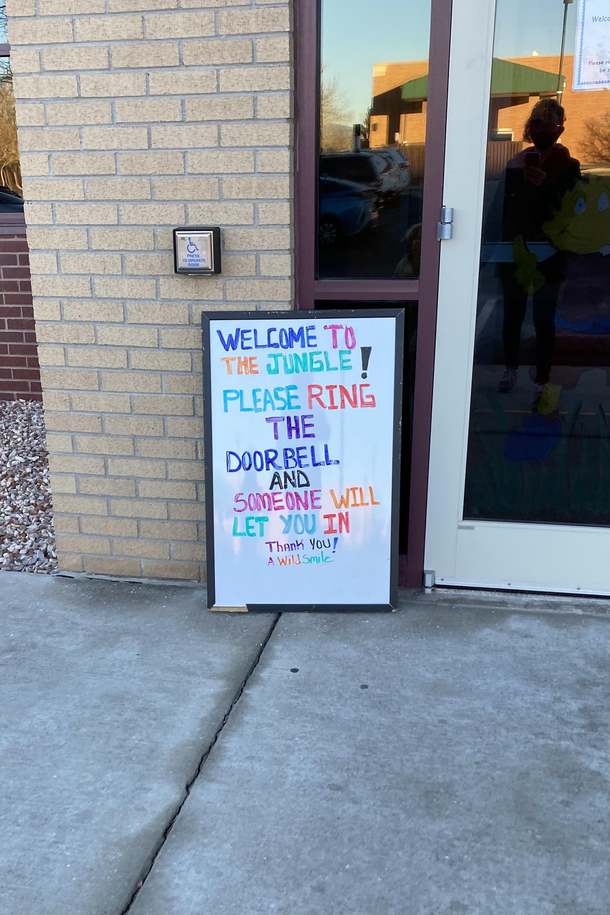 WELCOME TO
THE JUNGLE!
PLEASE RING
THE
DOORBELL
AND
SOMEONE WILL
LET YOU IN
Thank You!
A Wild Smile
PRESS
TO OPERATE
DOOR
Welco
Please
be